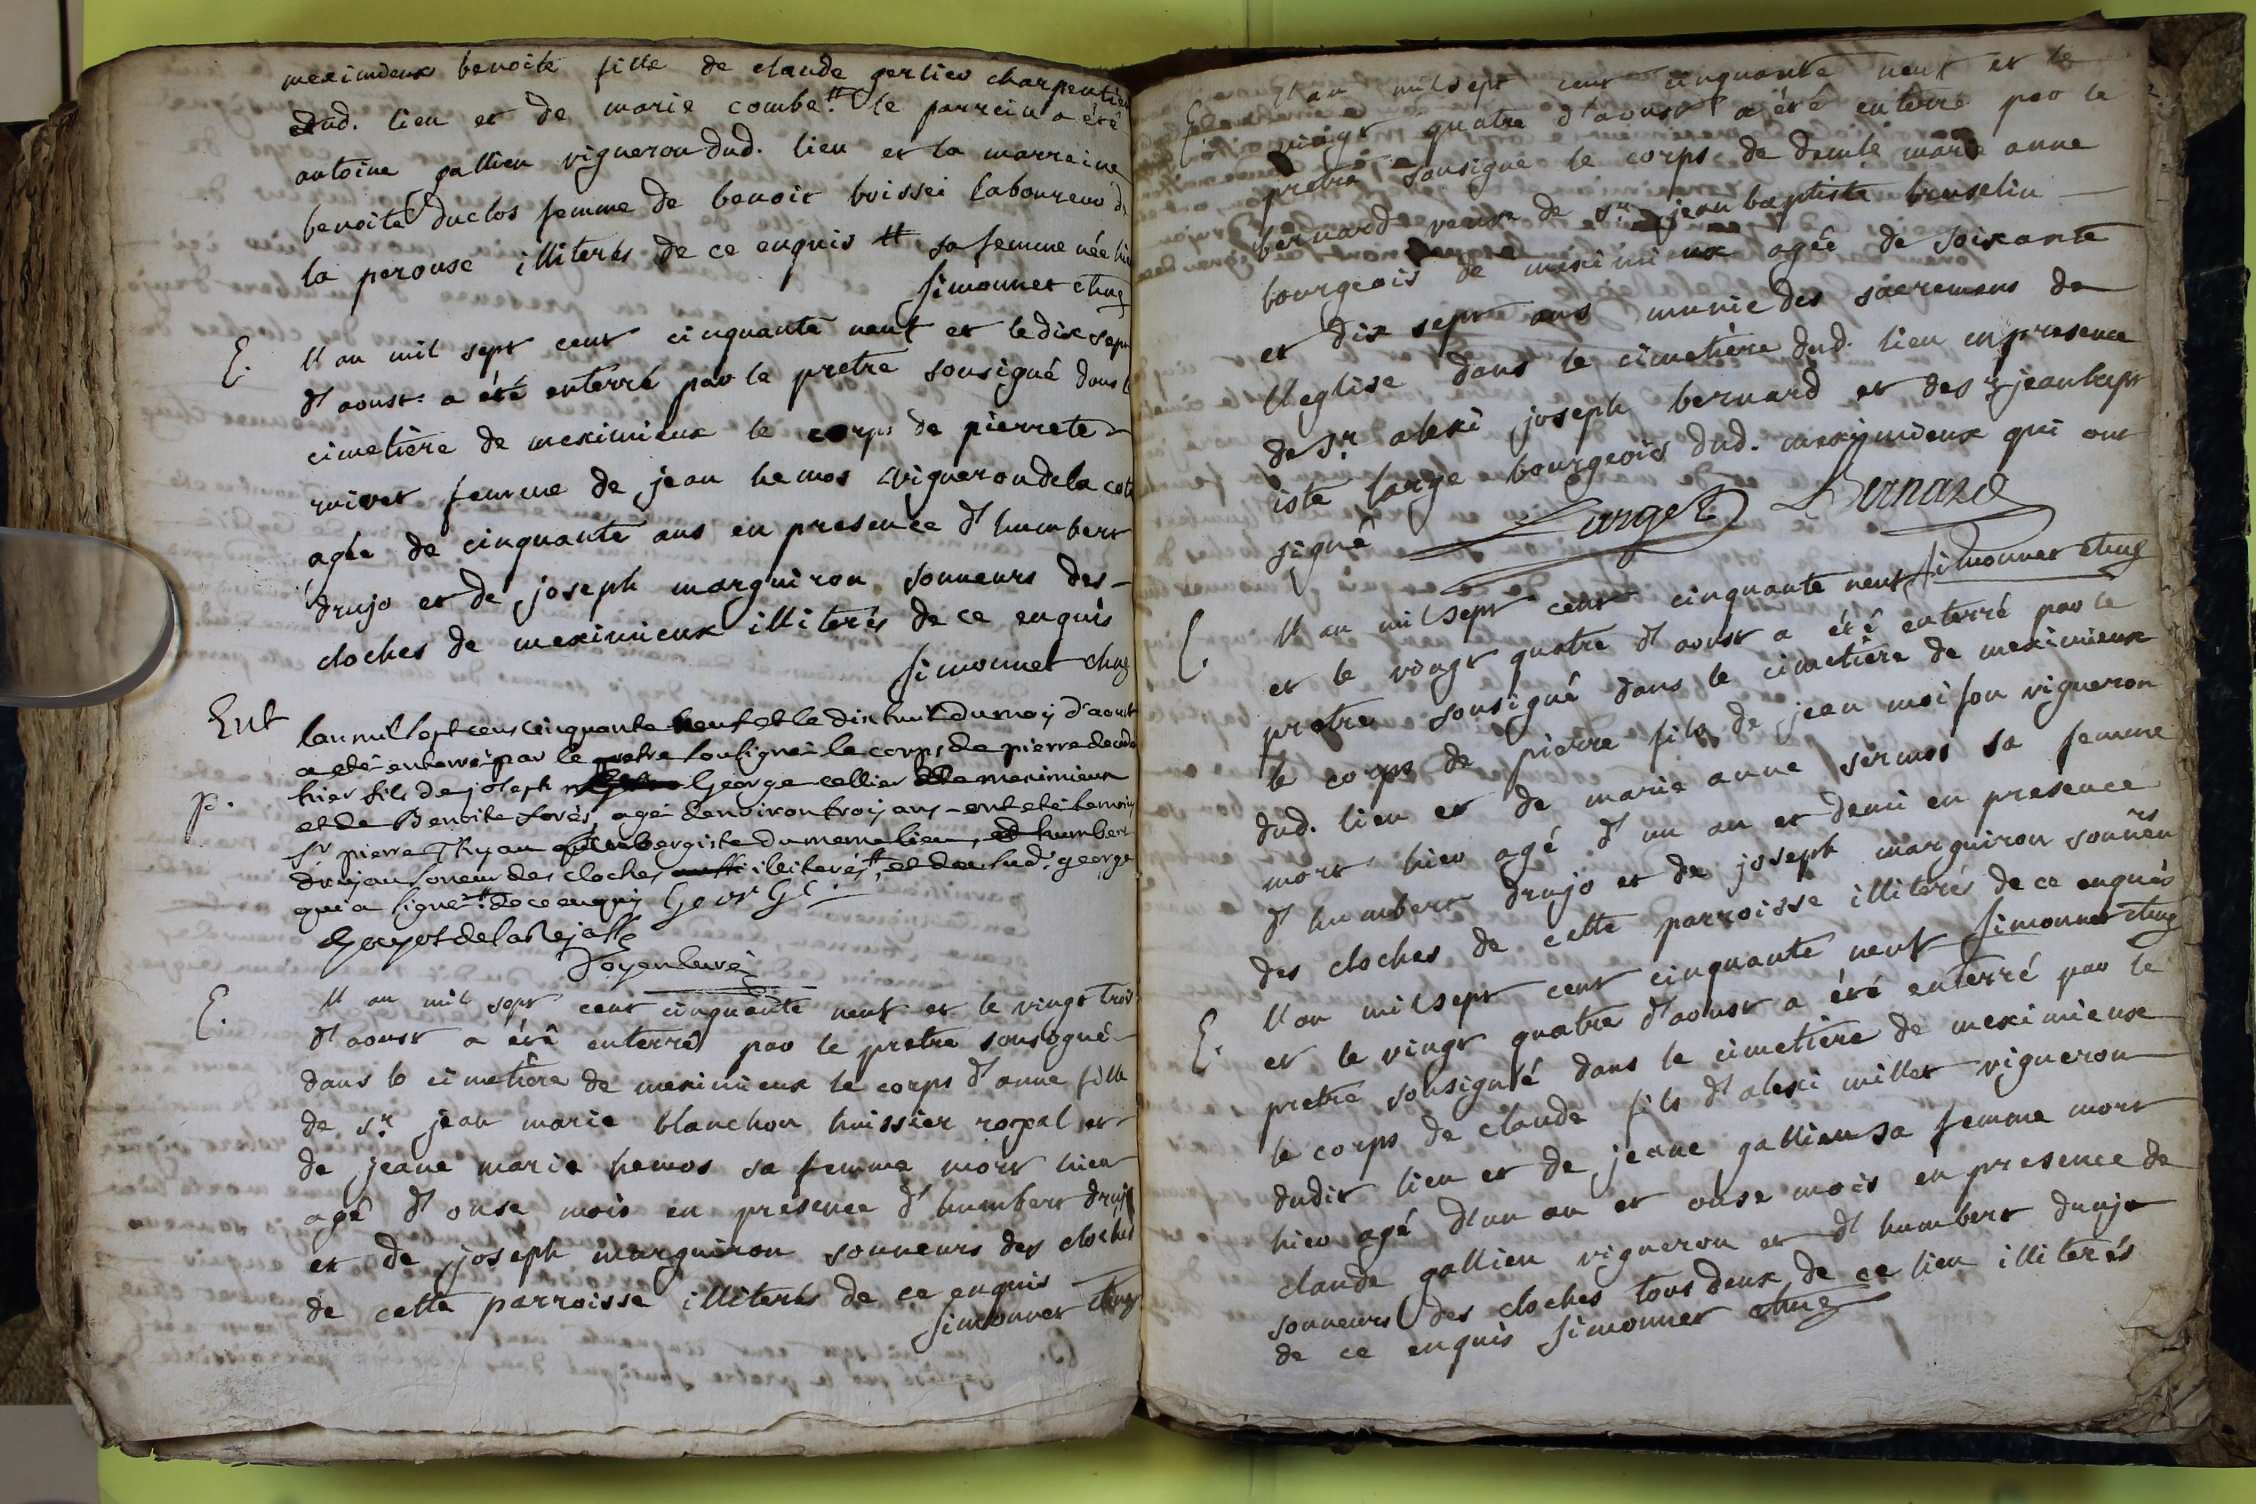 meximieux benoite fille de claude perlieu charpentier
dud. lieu et de marie combe tt le parrein a été
antoine gallien vigneron dud. lieu et la marreine
benoite duclos femme de benoit boissei laboureur d
la perouse illiterés de ce enquis tt sa femme née hier
Simonnet
E. l'an mil sept cent cinquante neuf et le dix sept
d'aoust a été enterré par le pretre sousigné dans le
cimetière de meximieux le corps de pierrete
femme de jean hemos vigneron de la cote
agée de cinquante ans en presence d'humbert
drujo et de joseph marguiron sonneurs des
cloches de meximieux illiterés de ce enquis
Simonnet
Ent lan mil sept cens cinquante neuf et le dix huit du moy d'aoust
a eté enterré par le pretre soussigné le corps de pierre decedé
hier fils de joseph George cellier de meximieux
p. et de Benoite forés agé denviron troy ans ont eté temoins
Sr pierre aubergiste du meme lieu, et humbert
drujau soneur des cloches illiterés tt, et led. george
qui a signé tt de ce enquis
Doyen curé
E. l'an mil sept cent cinquante neuf et le vingt trois
d'aoust a été enterré par le pretre sousigné
dans le cimetière de meximieux le corps d'anne fille
de sr. jean marie blanchon huissier royal et
de jeane marie hemos sa femme mort hier
agé d'onse mois en presence d'humbert drujo
et de joseph marguiron sonneurs des cloches
de cette parroisse illiterés de ce enquis
Simonnet
E. l'an mil sept cent cinquante neuf et le
vingt quatre d'aoust a été enterré par le
pretre sousigné le corps de demlle marie anne
bernard veuve de sr. jean baptiste
bourgeois de meximieux agée de soixante
et dix sept ans munie des sacremens de
l'eglise dans le cimetière dud. lieu en presence
de sr. alexi joseph bernard et de sr jean bapt
iste large bourgeois dud. meximieux qui ont
signé Large Bernard
Simonnet
E. l'an mil sept cent cinquante neuf
et le vingt quatre d'aoust a été enterré par le
pretre sousigné dans le cimetière de meximieux
le corps de pierre fils de jean moison vigneron
dud. lieu et de marie anne sermos sa femme
mort hier agé d'un an et demi en presence
d'humbert drujo et de joseph marguiron sonneurs
des cloches de cette parroisse illiterés de ce enquis
Simonnet
E. l'an mil sept cent cinquante neuf
et le vingt quatre d'aoust a été enterré par le
pretre sousigné dans le cimetière de meximieux
le corps de claude fils d'alexi millet vigneron
dudit lieu et de jeane gallien sa femme mort
hier agé d'un an et onse mois en presence de
claude gallien vigneron et d'humbert drujo
sonneurs des cloches tous deux de ce lieu illiterés
de ce enquis Simonnet